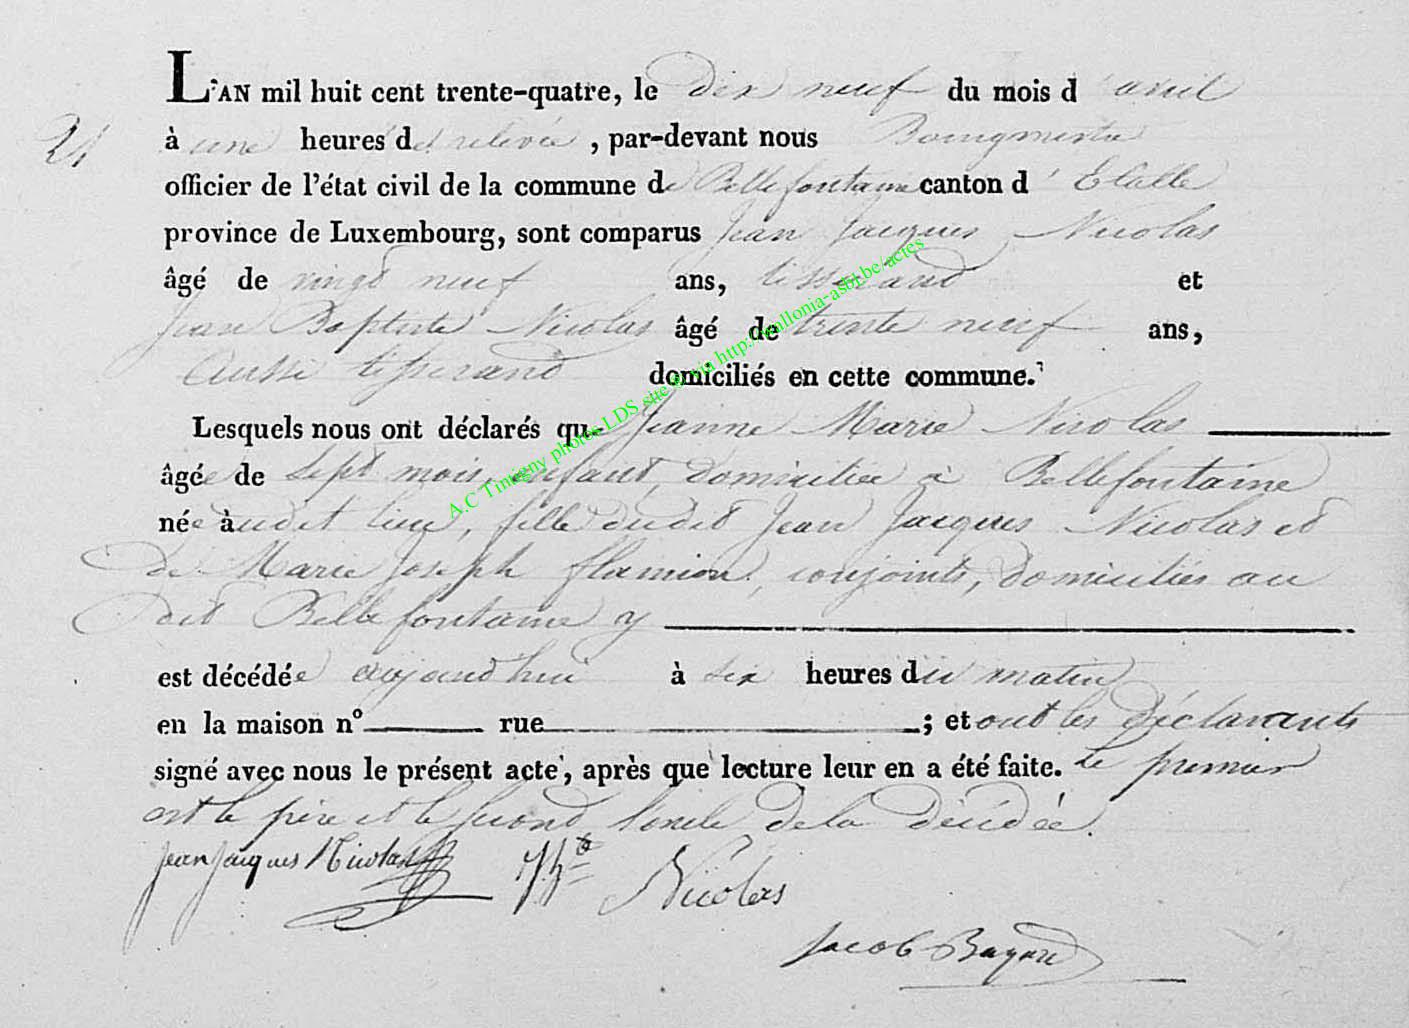 L'AN mil huit cent trente-quatre, le dix neuf du mois d'avril
21
à une heures de relevée, par-devant nous Bourgmestre
officier de l'état civil de la commune de Bellefontaine canton d'Etalle
province de Luxembourg, sont comparus Jean Jacques Nicolas
âgé de vingt neuf ans, tisserand et
Jean Baptiste Nicolas âgé de trente neuf ans,
aussi tisserand domiciliés en cette commune.
Lesquels nous ont déclarés qu- Jeanne Marie Nicolas
âgée de sept mois, enfant, domiciliée à Bellefontaine
née audit lieu, fille dudit Jean Jacques Nicolas et
de Marie Joseph flamion, conjoints, domiciliés au
dit Bellefontaine y
est décédée aujourd'hui à six heures du matin
en la maison n° rue ; et ont les déclarants
signé avec nous le présent acte, après que lecture leur en a été faite. Le premier
est le père et le second l'oncle de la décédée.
Jean Jacques Nicolas Nicolas
Jacob Bayard
A.C Tintigny photos LDS site @ via http://wallonia-asbl.be/actes